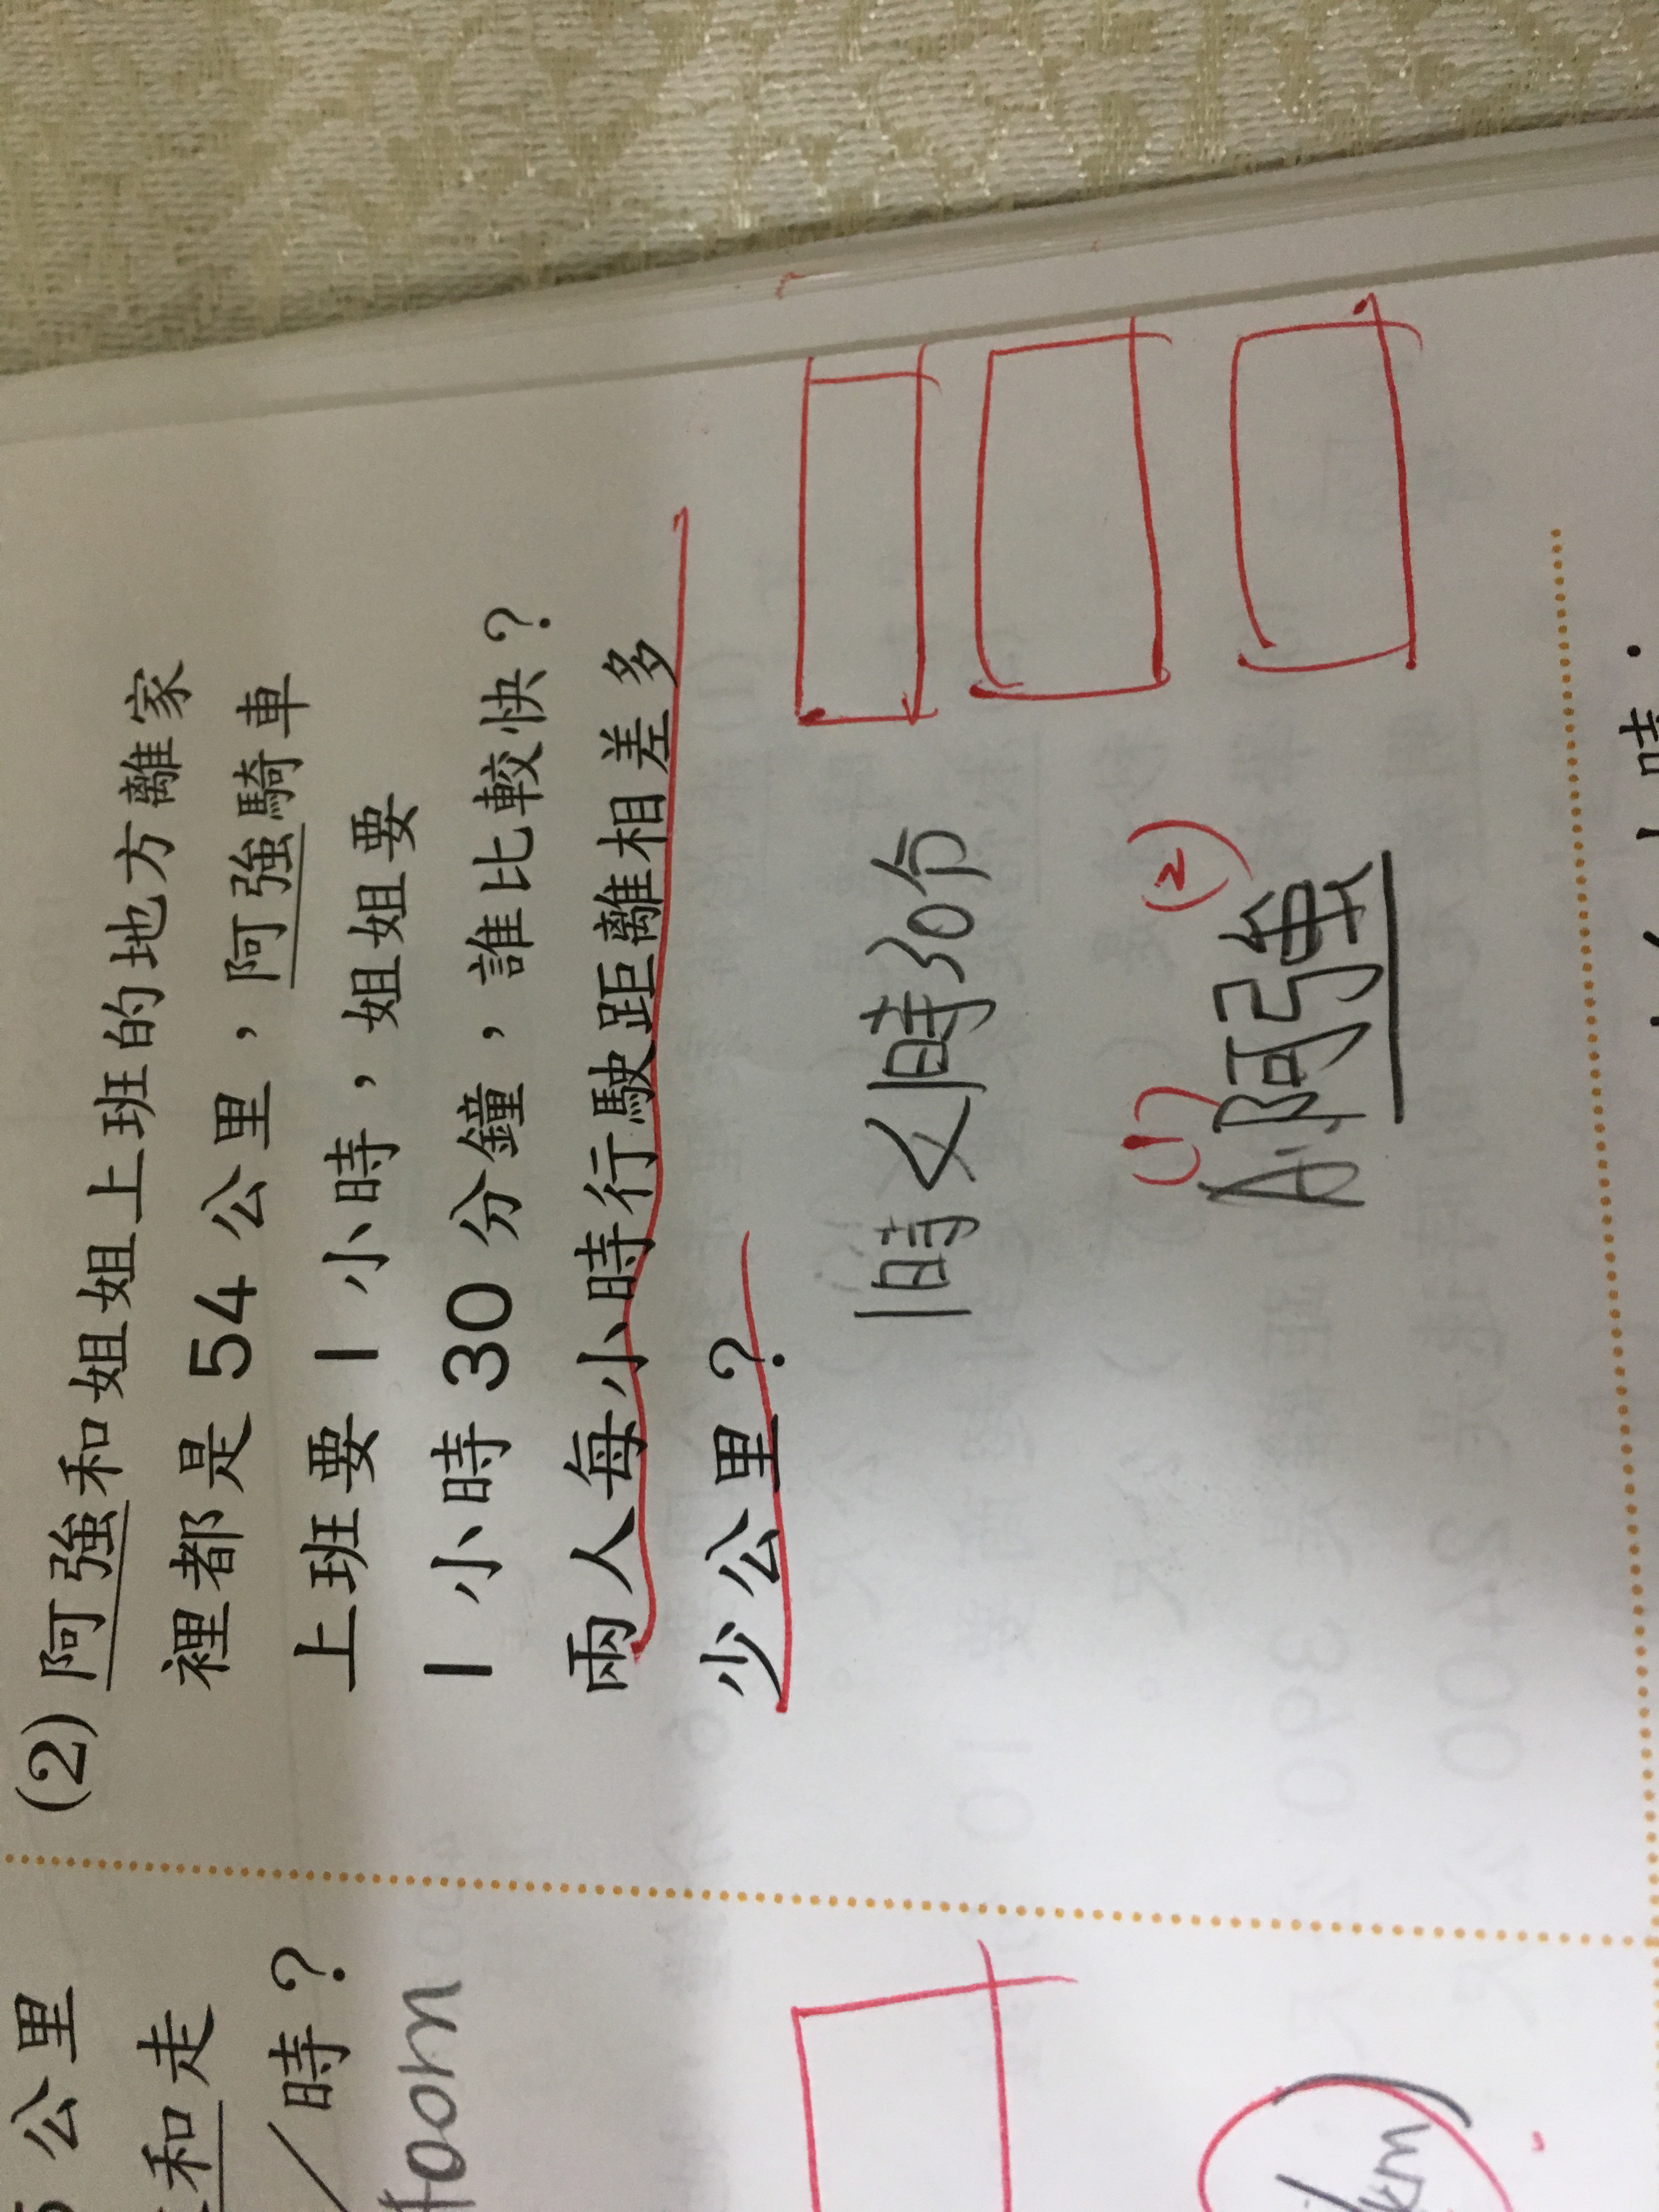 (2) 阿強和姐姐上班的地方離家
裡都是 54 公里，阿強騎車
上班要 1 小時，姐姐要
1 小時 30 分鐘，誰比較快？
兩人每小時行駛距離相差多
少公里？
1時<1時30分
(1) (2)
A:阿強
公里
和走
／時？
00m
km